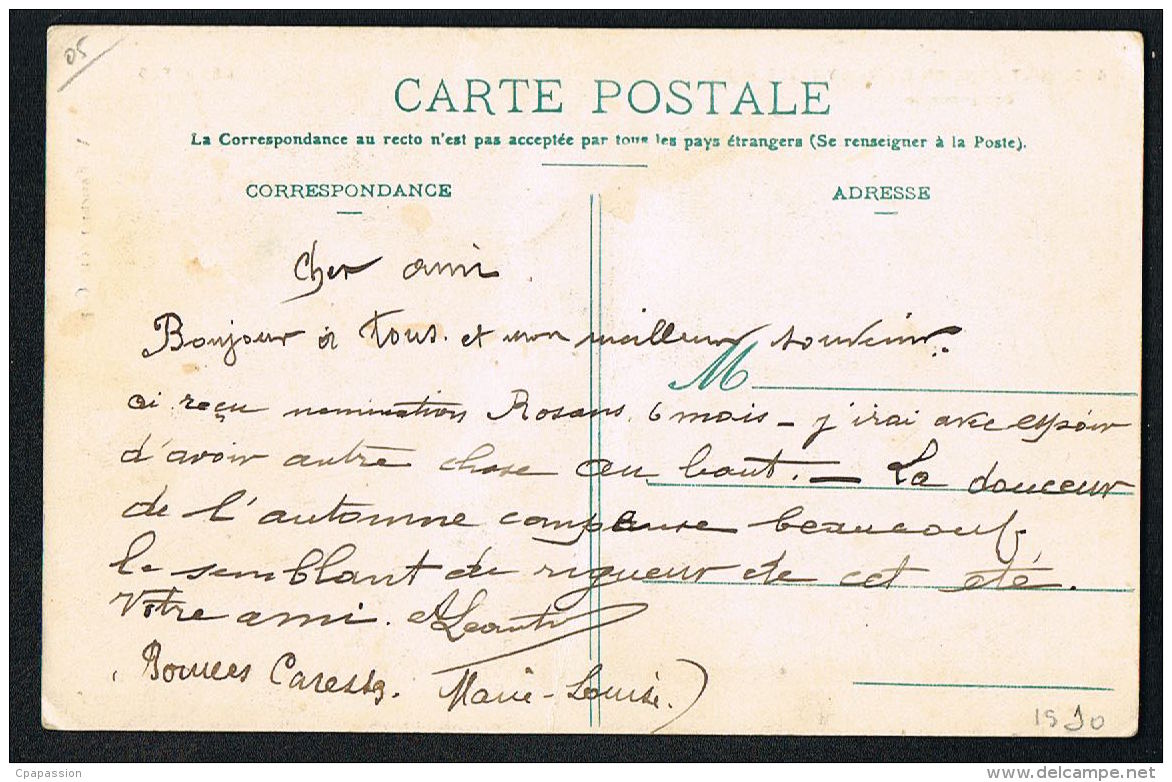 05
CARTE POSTALE
La Correspondance au recto n'est pas acceptée par tous les pays étrangers (Se renseigner à la Poste).
CORRESPONDANCE
ADRESSE
Cher ami
Bonjour à Tous. et mon meilleur souvenir.
M
ai reçu nomination Rosans 6 mois - j'irai avec espoir
d'avoir autre chose au bout. - La douceur
de l'automne compense beaucoup
le semblant de rigueur de cet été.
Votre ami.
(Bonnes Caresses. Marie-Louise.)
1910
Cpapassion
www.delcampe.net